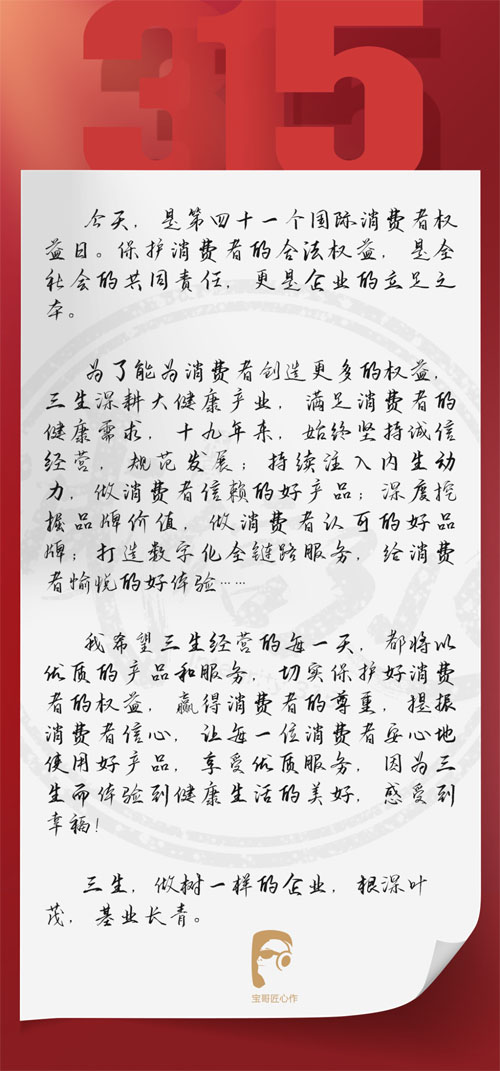 315
今天，是第四十一个国际消费者权
益日。保护消费者的合法权益，是全
社会的共同责任，更是企业的立足之
本。
为了能为消费者创造更多的权益，
三生深耕大健康产业，满足消费者的
健康需求，十九年来，始终坚持诚信
经营，规范发展；持续注入内生动
力，做消费者信赖的好产品；深度挖
掘品牌价值，做消费者认可的好品
牌；打造数字化全链路服务，给消费
者愉悦的好体验……
我希望三生经营的每一天，都将以
优质的产品和服务，切实保护好消费
者的权益，赢得消费者的尊重，提振
消费者信心，让每一位消费者安心地
使用好产品，享受优质服务，因为三
生而体验到健康生活的美好，感受到
幸福！
三生，做树一样的企业，根深叶
茂，基业长青。
宝哥匠心作